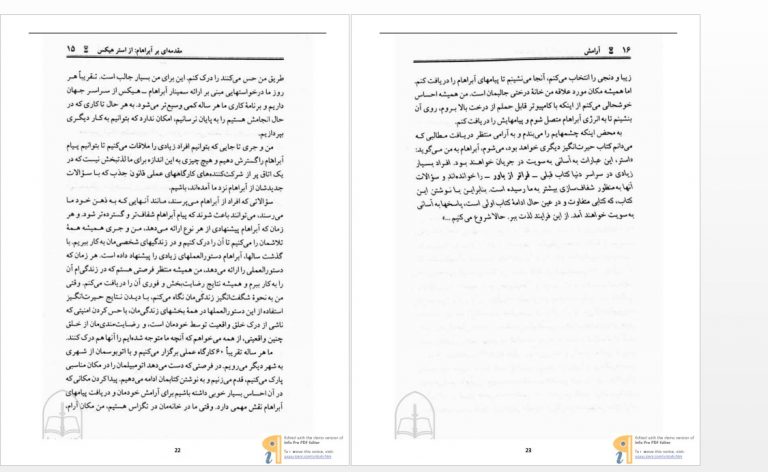 مقدمه‌ای بر آبراهام: از استر هیکس ۱۵
طریق من حس می‌کنند را درک کنم. این برای من بسیار جالب است. تقریباً هر
روز ما درخواستهایی مبنی بر ارائه سمینار آبراهام ـ هیکس از سراسر جهان
داریم و برنامهٔ کاری ما هر ساله کمی وسیع‌تر می‌شود. به هر حال تا کاری که در
حال انجامش هستیم را به پایان نرسانیم، امکان ندارد که بتوانیم به کار دیگری
بپردازیم.
من و جری تا جایی که بتوانیم افراد زیادی را ملاقات می‌کنیم تا بتوانیم پیام
آبراهام را گسترش دهیم و هیچ چیزی به این اندازه برای ما لذتبخش نیست که در
یک اتاق پر از شرکت‌کننده‌های کارگاههای عملی قانون جذب که با سؤالات
جدیدشان از آبراهام نزد ما آمده‌اند، باشیم.
سؤالاتی که افراد از آبراهام می‌پرسند، مانند آنهایی که به ذهن خود ما
می‌رسند، می‌توانند باعث شوند که پیام آبراهام شفاف‌تر و گسترده‌تر شود. و هر
زمان که آبراهام پیشنهادی از هر نوع ارائه می‌دهد، من و جری همیشه همهٔ
تلاشمان را می‌کنیم تا آن را درک کنیم و در زندگیهای شخصی‌مان به کار ببریم. با
گذشت سالها، آبراهام دستورالعملهای زیادی را پیشنهاد داده است. هر زمان که
دستورالعملی را ارائه می‌دهد، من همیشه منتظر فرصتی هستم که در زندگی‌ام آن
را به کار ببرم و همیشه نتایج رضایت‌بخش و فوری آن را دریافت می‌کنم. وقتی
من به نحوهٔ شگفت‌انگیز زندگی‌مان نگاه می‌کنم، با دیدن نتایج حیرت‌انگیز
استفاده از این دستورالعملها در همهٔ بخشهای زندگی‌مان، با حس کردن امنیتی که
ناشی از درک خلق واقعیت توسط خودمان است، و رضایت‌مندی‌مان از خلق
چنین واقعیتی، از همه می‌خواهم که آنچه ما متوجه شده‌ایم را آنها هم درک کنند.
ما هر ساله تقریباً ۶۰ کارگاه عملی برگزار می‌کنیم و با اتوبوسمان از شهری
به شهر دیگر می‌رویم. در فرصتی که دست می‌دهد اتومبیلمان را در مکان مناسبی
پارک می‌کنیم، قدم می‌زنیم و به نوشتن کتابمان ادامه می‌دهیم. پیدا کردن مکانی که
در آن احساس بسیار خوبی داشته باشیم برای آرامش خودمان و دریافت پیامهای
آبراهام نقش مهمی دارد. وقتی ما در خانه‌مان در تگزاس هستیم، من مکان آرام،
Edited with the demo version of
Infix Pro PDF Editor
To remove this notice, visit:
www.iceni.com/unlock.htm
22
۱۶ آرامش
زیبا و دنجی را انتخاب می‌کنم، آنجا می‌نشینم تا پیامهای آبراهام را دریافت کنم.
اما همیشه مکان مورد علاقه من خانهٔ درختی جالبمان است. من همیشه احساس
خوشحالی می‌کنم از اینکه با کامپیوتر قابل حملم از درخت بالا بروم، روی آن
بنشینم تا به انرژی آبراهام متصل شوم و پیامهایش را دریافت کنم.
به محض اینکه چشمهایم را می‌بندم و به آرامی منتظر دریافت مطالبی که
می‌دانم کتاب حیرت‌انگیز دیگری خواهد بود، می‌شوم، آبراهام به من می‌گوید:
«استر، این عبارات به آسانی به سویت در جریان خواهند بود. افراد بسیار
زیادی در سراسر دنیا کتاب قبلی ـ فراتر از باور ـ را خوانده‌اند و سؤالات
آنها به منظور شفاف‌سازی بیشتر به ما رسیده است. بنابراین با نوشتن این
کتاب، که کتابی متفاوت و در عین حال ادامهٔ کتاب اولی است، پاسخها به آسانی
به سویت خواهند آمد. از این فرایند لذت ببر. حالا شروع می‌کنیم ...»
Edited with the demo version of
Infix Pro PDF Editor
To remove this notice, visit:
www.iceni.com/unlock.htm
23